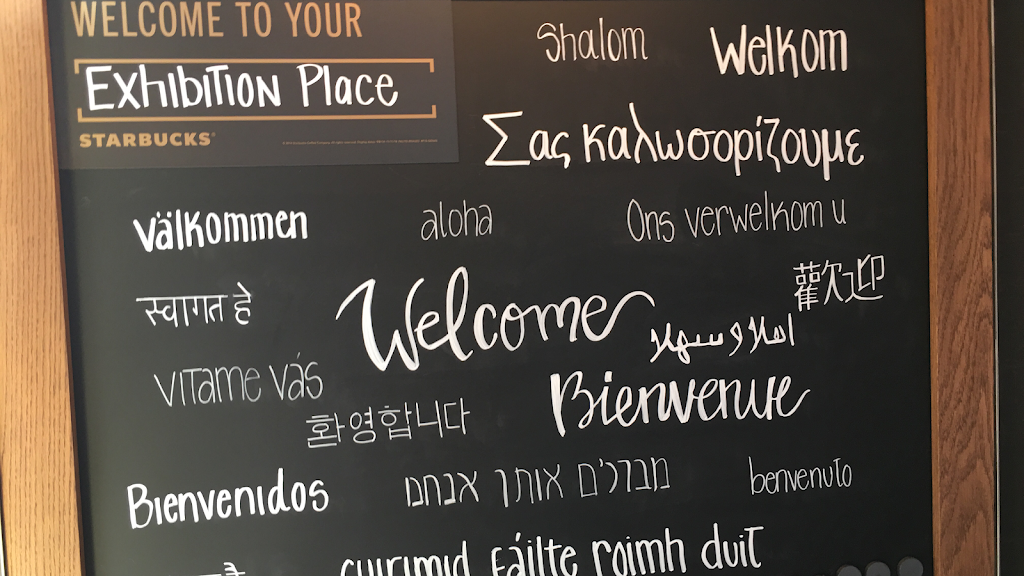 WELCOME TO YOUR
EXHIBITION Place
STARBUCKS
Shalom
Welkom
Σας καλωσορίζουμε
välkommen
aloha
Ons verwelkom u
स्वागत हे
Welcome
歡迎
اهلا و سهلا
VITAME Vás
환영합니다
Bienvenue
BIENVENIDOS
אנחנו אותך מברכים
benvenuto
cuirimid fáilte roimh duit